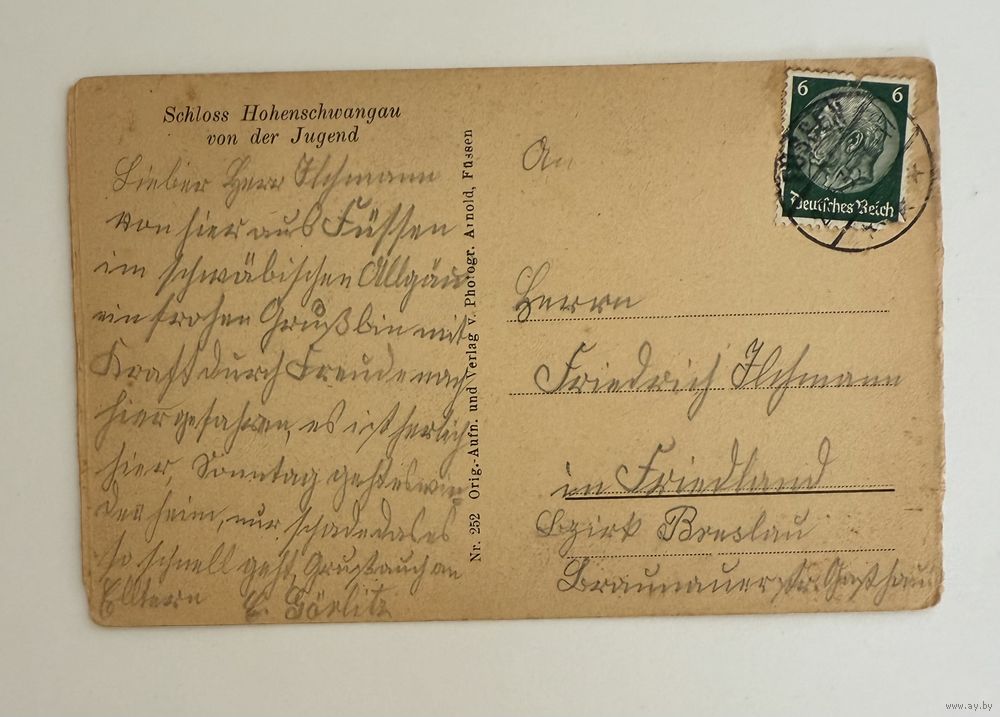 Schloss Hohenschwangau
von der Jugend
Lieber Herr Ilchmann
von hier aus Füssen
im schwäbischen Allgäu
ein frohen Gruß bin mit
Kraft durch Freude nach
hier gefahren, es ist herlich
hier, Sonntag geht es wie
der heim, nur schade das es
so schnell geht, Gruß auch an
Elltern E. Görlitz
Nr. 252 Orig.-Aufn. und Verlag v. Photogr. Arnold, Füssen
6 6
Deutsches Reich
FÜSSEN
An
Herrn
Friedrich Ilchmann
in Friedland
Bzirk Breslau
Braunauerstr. Gasthaus
www.ay.by